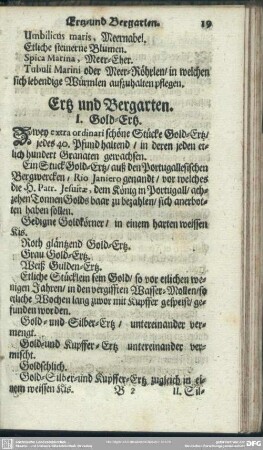 Ertz und Bergarten. 19
Umbilicus maris, Meernabel.
Etliche steinerne Blumen.
Spica Marina, Meer-Eher.
Tubuli Marini oder Meer-Röhrlen/ in welchen
sich lebendige Würmlen auffzuhalten pflegen.
Ertz und Bergarten.
I. Gold-Ertz.
Zwey extra ordinari schöne Stücke Gold-Ertz/
jedes 40. Pfund haltend/ in deren jeden et-
lich hundert Granaten gewachsen.
Ein Stuck Gold-Ertz/ auß den Portugallesischen
Bergwercken/ Rio Janiero genandt/ vor welches
die H. Patr. Jesuitæ, dem König in Portugall/ ach-
zehen Tonnen Golds baar zu bezahlen/ sich anerbot-
ten haben sollen.
Gedigne Goldkörner/ in einem harten weissen
Kis.
Roth gläntzend Gold-Ertz.
Grau Gold-Ertz.
Weiß Gulden-Ertz.
Etliche Stücklein fein Gold/ so vor etlichen we-
nigen Jahren/ in den vergifften Wasser-Mollen/ so
etliche Wochen lang zuvor mit Kupffer gespeist/ ge-
funden worden.
Gold- und Silber-Ertz/ untereinander ver-
mengt.
Gold- und Kupffer-Ertz untereinander ver-
mischt.
Goldschlich.
Gold-Silber- und Kupffer-Ertz zugleich in ei-
nem weissen Kis.
B 2 II. Sil-